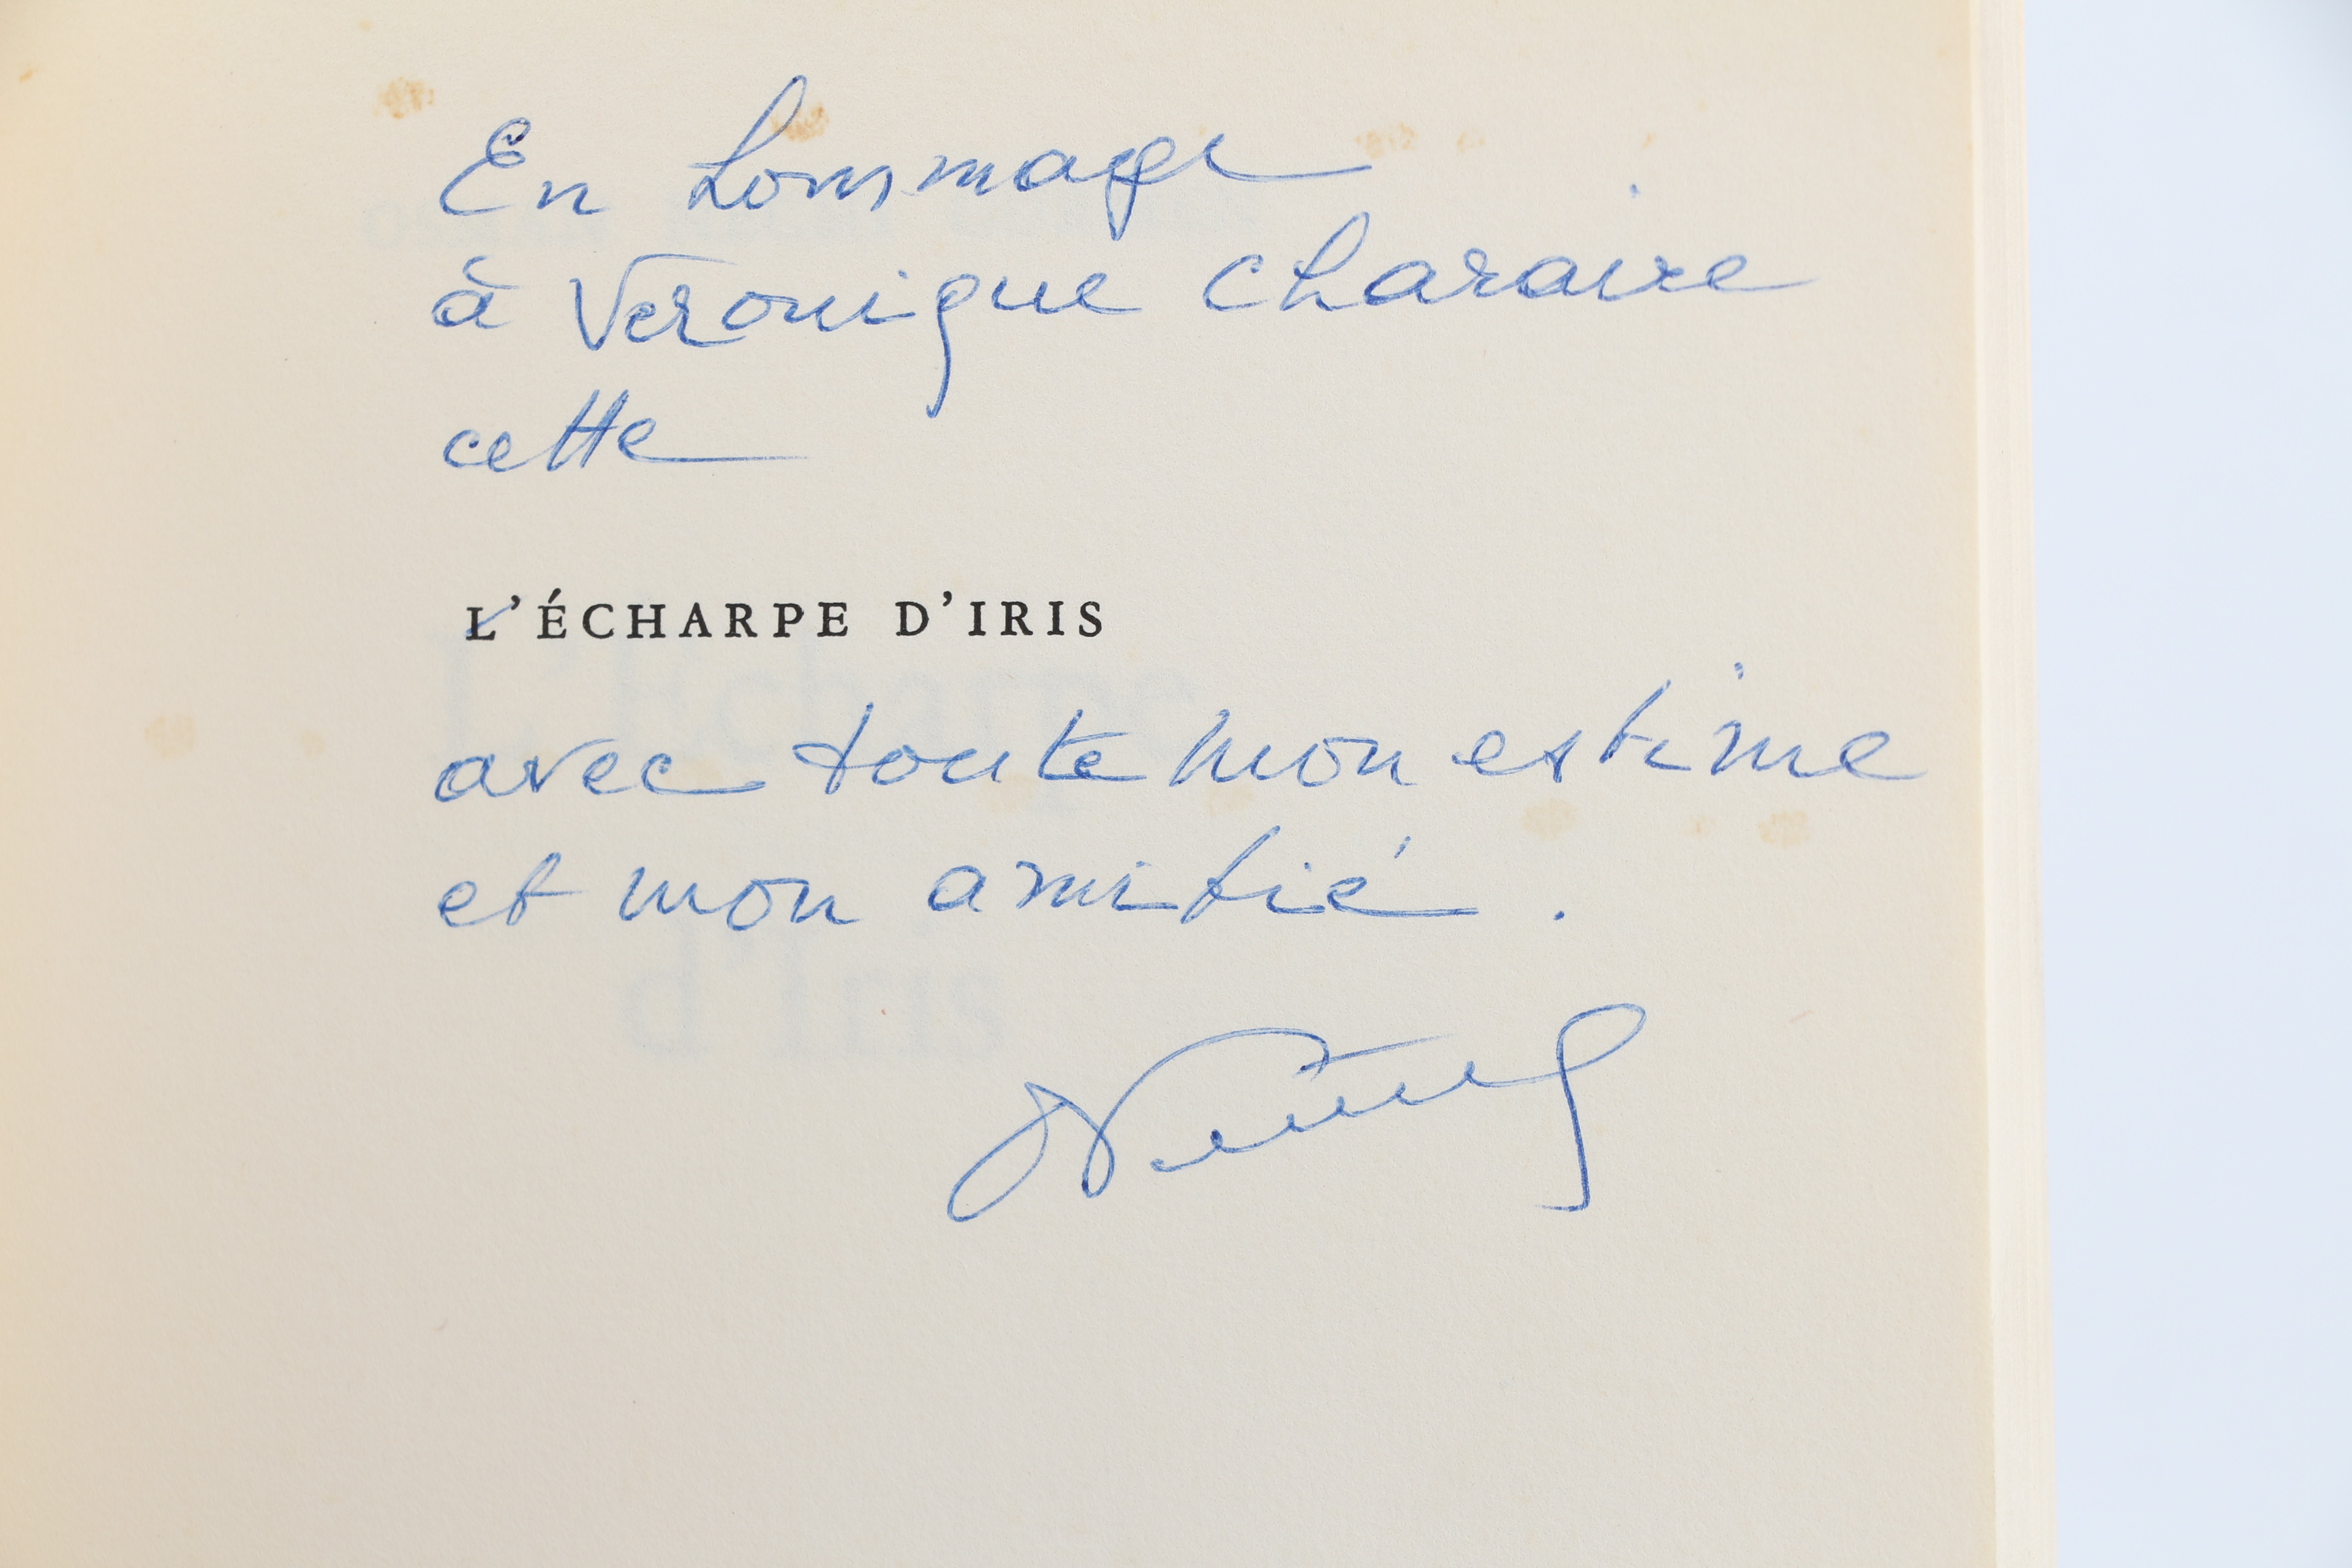 En hommage
à Veronique Charaire
cette
L'ÉCHARPE D'IRIS
avec toute mon estime
et mon amitié.